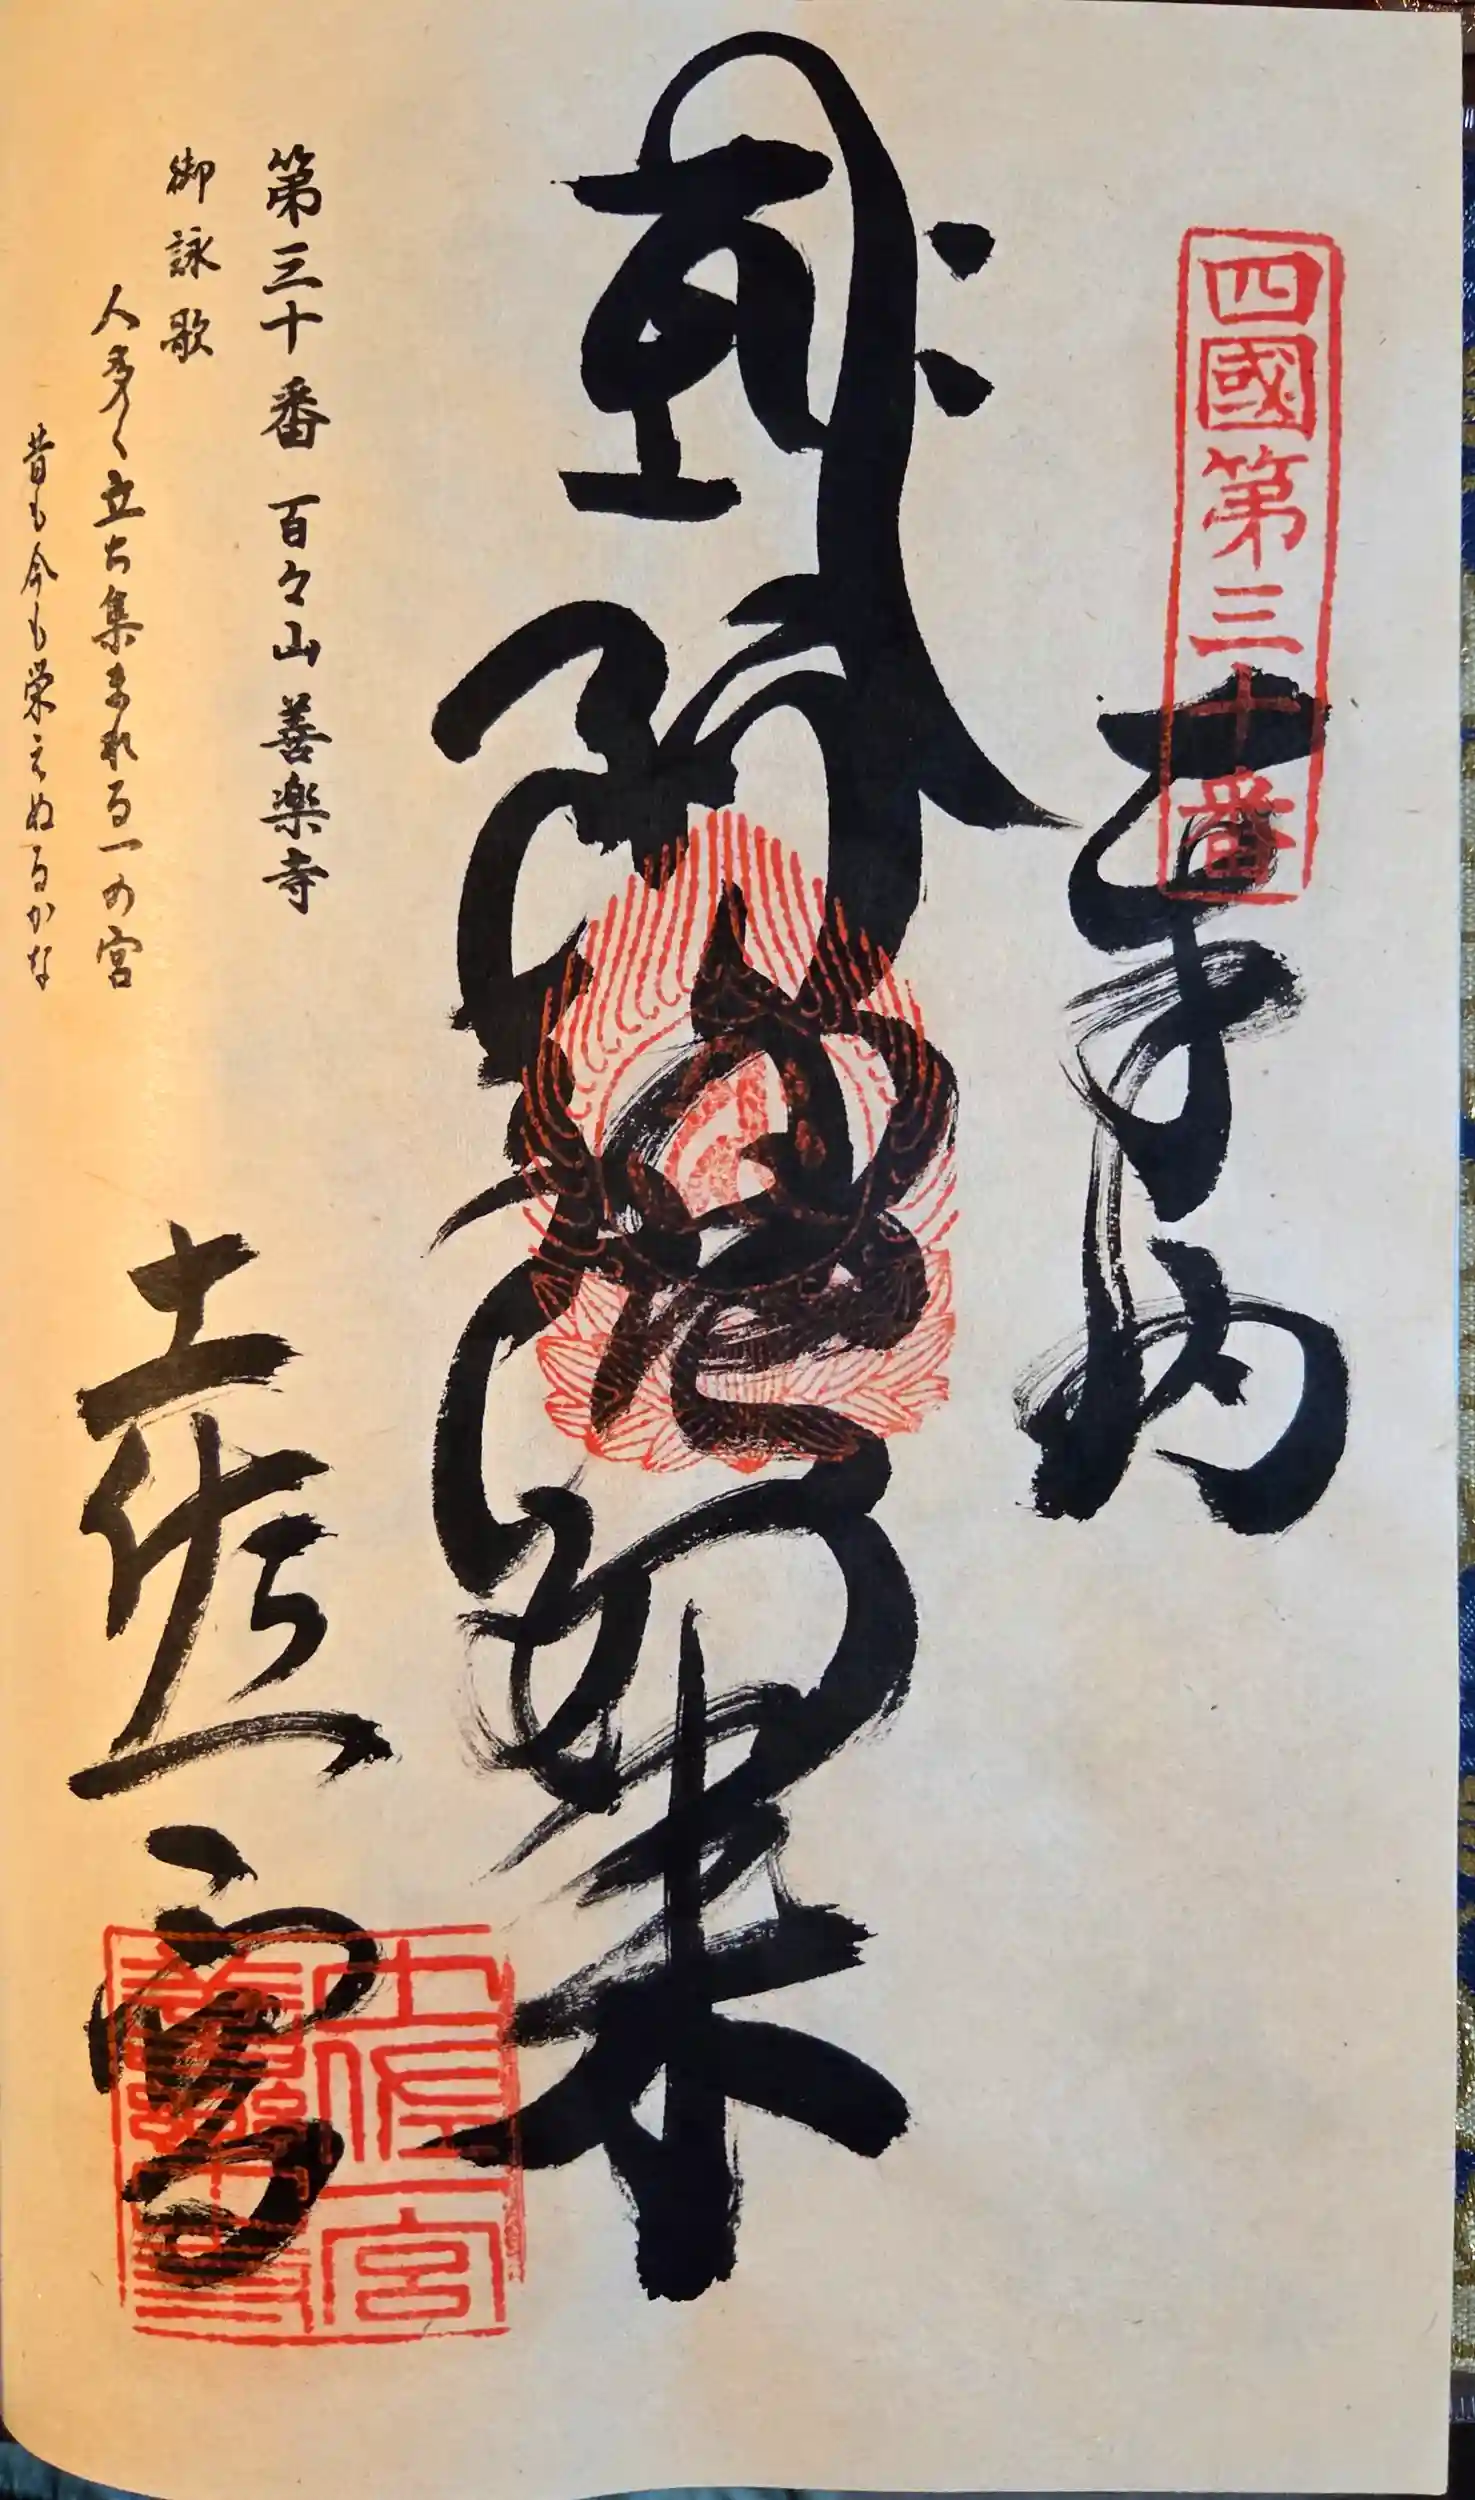 四國第三十番
奉納
阿弥陀如来
第三十番 百々山 善楽寺
御詠歌
人多く立ち集まれる一の宮
昔も今も栄えぬるかな
土佐一宮
土佐一宮